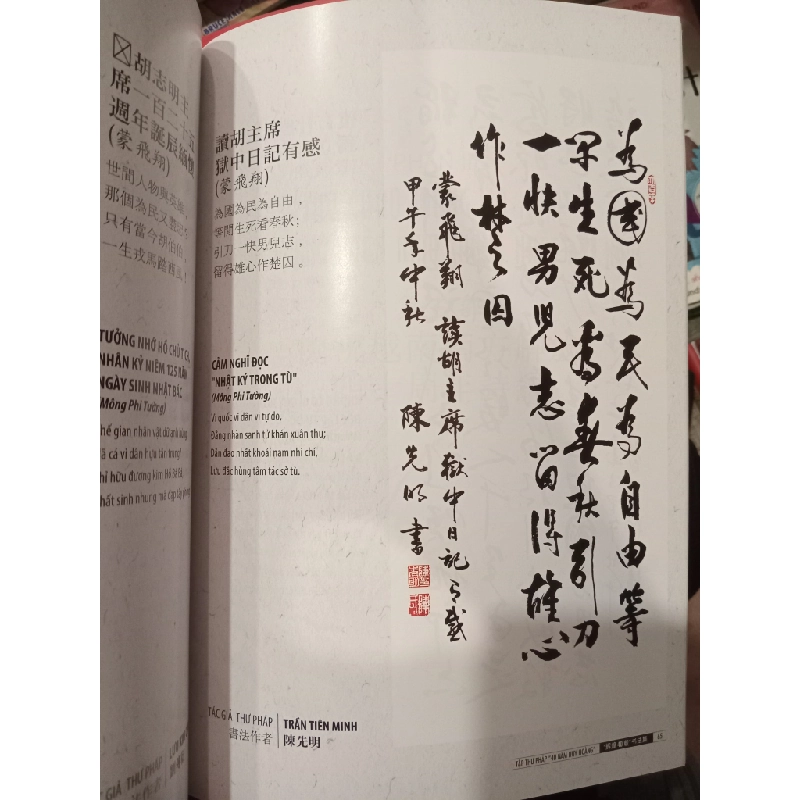 胡志明主
席一百二十五
週年誕辰緬懷
(蒙飛翔)
世間人物與英雄，
那個為民又
只有當今胡伯伯，
一生戎馬踏
TƯỞNG NHỚ HỒ CHỦ TỊCH
NHÂN KỶ NIỆM 125 NĂM
NGÀY SINH NHẬT BÁC
(Mông Phi Tường)
讀胡主席
獄中日記有感
(蒙飛翔)
為國為民為自由，
等閒生死看春秋；
引刀一快男兒志，
留得雄心作楚囚。
CẢM NGHĨ ĐỌC
"NHẬT KÝ TRONG TÙ"
(Mông Phi Tường)
Vị quốc vị dân vị tự do,
Đẳng nhàn sanh tử khán xuân thu;
Dẫn đao nhất khoái nam nhi chí,
Lưu đắc hùng tâm tác sở tù.
為國為民為自由等
閑生死看春秋引刀
一快男兒志留得雄心
作楚囚
蒙飛翔 讀胡主席獄中日記有感
甲午年仲秋 陳先明書
TÁC GIẢ THƯ PHÁP
書法作者
TRẦN TIÊN MINH
陳先明
GIẢ THƯ PHÁP